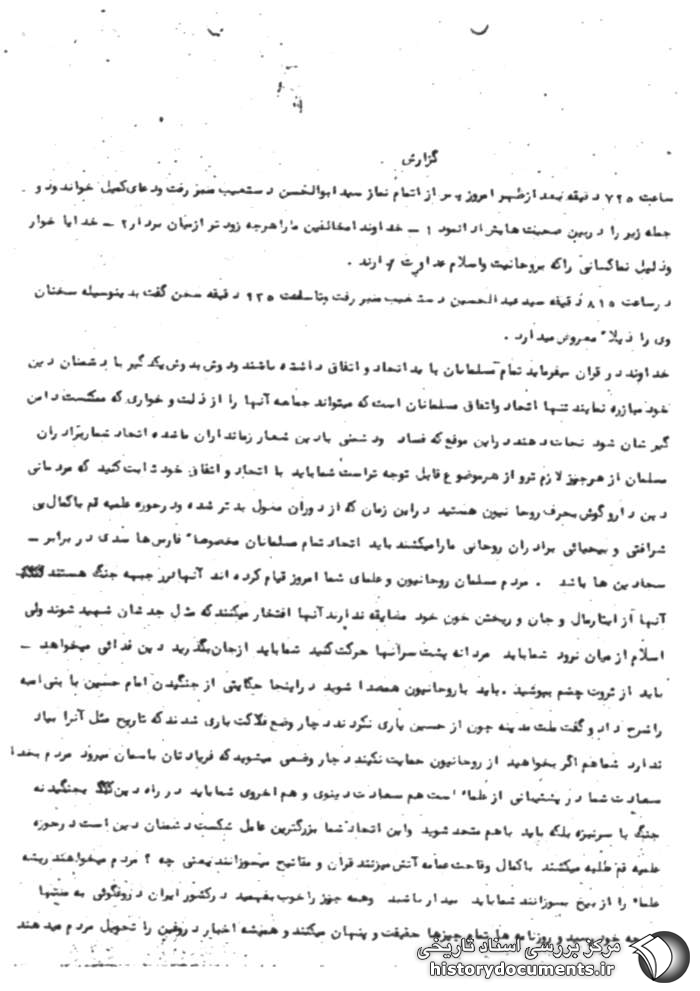 گزارش
ساعت ۷۲۵ دقیقه بعد ازظهر امروز پس از اتمام نماز سید ابوالحسن دستغیب منبر رفت ودعای کمیل خواند ود و
جمله زیر را دربین صحبت هایش ادا نمود ۱ – خداوندا مخالفین ما را هرچه زود تر ازمیان بردار ۲ – خدایا خوار
وذلیل نما کسانی راکه بروحانیت واسلام عداوت دارند .
درساعت ۸۱۵ دقیقه سید عبدالحسین دستغیب منبر رفت وتاساعت ۹۲۵ دقیقه سخن گفت بدینوسیله سخنان
وی را ذیلا" معروض میدارد .
خداوند در قران میفرماید تمام مسلمانان باید اتحاد واتفاق داشته باشند ودوش بدوش یکدگیر با دشمنان دین
خود مبارزه نمایند تنها اتحاد واتفاق مسلمانان است که میتواند جماعه آنها را از ذلت و خواری که ممکنست دامن
گیرشان شود نجات دهند دراین موقع که فساد ودشمنی بادین شعار زمانداران ماشده اتحاد شما برادران
مسلمان از هرچیز لازم ترو از هرموضوع قابل توجه تراست شماباید با اتحاد و اتفاق خود ثابت کنید که مردمانی
دین دارو گوش بحرف روحانیون هستید دراین زمان که از دوران مغول بدتر شده ودرحوزه علمیه قم باکمال بی
شرافتی و بیحیائی برادران روحانی مارامیکشند باید اتحاد تمام مسلمانان مخصوصا" فارس ها سدی در برابر –
. مردم مسلمان روحانیون وعلمای شما امروز قیام کرده اند آنها در جبهه جنگ هستند
آنها از ایثارمال و جان و ریختن خون خود مضایقه ندارند آنها افتخار میکنند که مثل جدشان شهید شوند ولی
اسلام از میان نرود شماباید مردانه پشت سرآنها حرکت کنید شماباید ازجان بگذرید دین فدائی میخواهد –
باید از ثروت چشم بپوشید . باید باروحانیون همصدا شوید دراینجا حکایتی از جنگیدن امام حسین با بنی امیه
راشرح داد و گفت ملت مدینه چون از حسین یاری نکردند دچار وضع فلاکت باری شدند که تاریخ مثل آنرا بیاد
ندارد شماهم اگر بخواهید از روحانیون حمایت نکنید دچار وضعی میشوید که فریادتان باسمان میرود مردم بخدا
سعادت شما در پشتیبانی از علماء است هم سعادت دینوی و هم اخروی شماباید در راه دین بجنگید نه
جنگ با سرنیزه بلکه باید باهم متحد شوید واین اتحاد شما بزرگترین عامل شکست دشمنان دین است درحوزه
علمیه قم طلبه میکشند باکمال وقاحت عمامه آتش میزنند قران و مفاتیح میسوزانند یعنی چه ؟ مردم میخواهند ریشه
علماء را از بیخ بسوزانند شماباید بیدار باشید وهمه چیز را خوب بفهمید درکشور ایران دروغگوئی به منتها
درجه خود رسیده روزنامه ها تمام چیزها حقیقت و پنهان میکنند و همیشه اخبار دروغین را تحویل مردم میدهند
مرکز بررسی اسناد تاریخی
historydocuments.ir